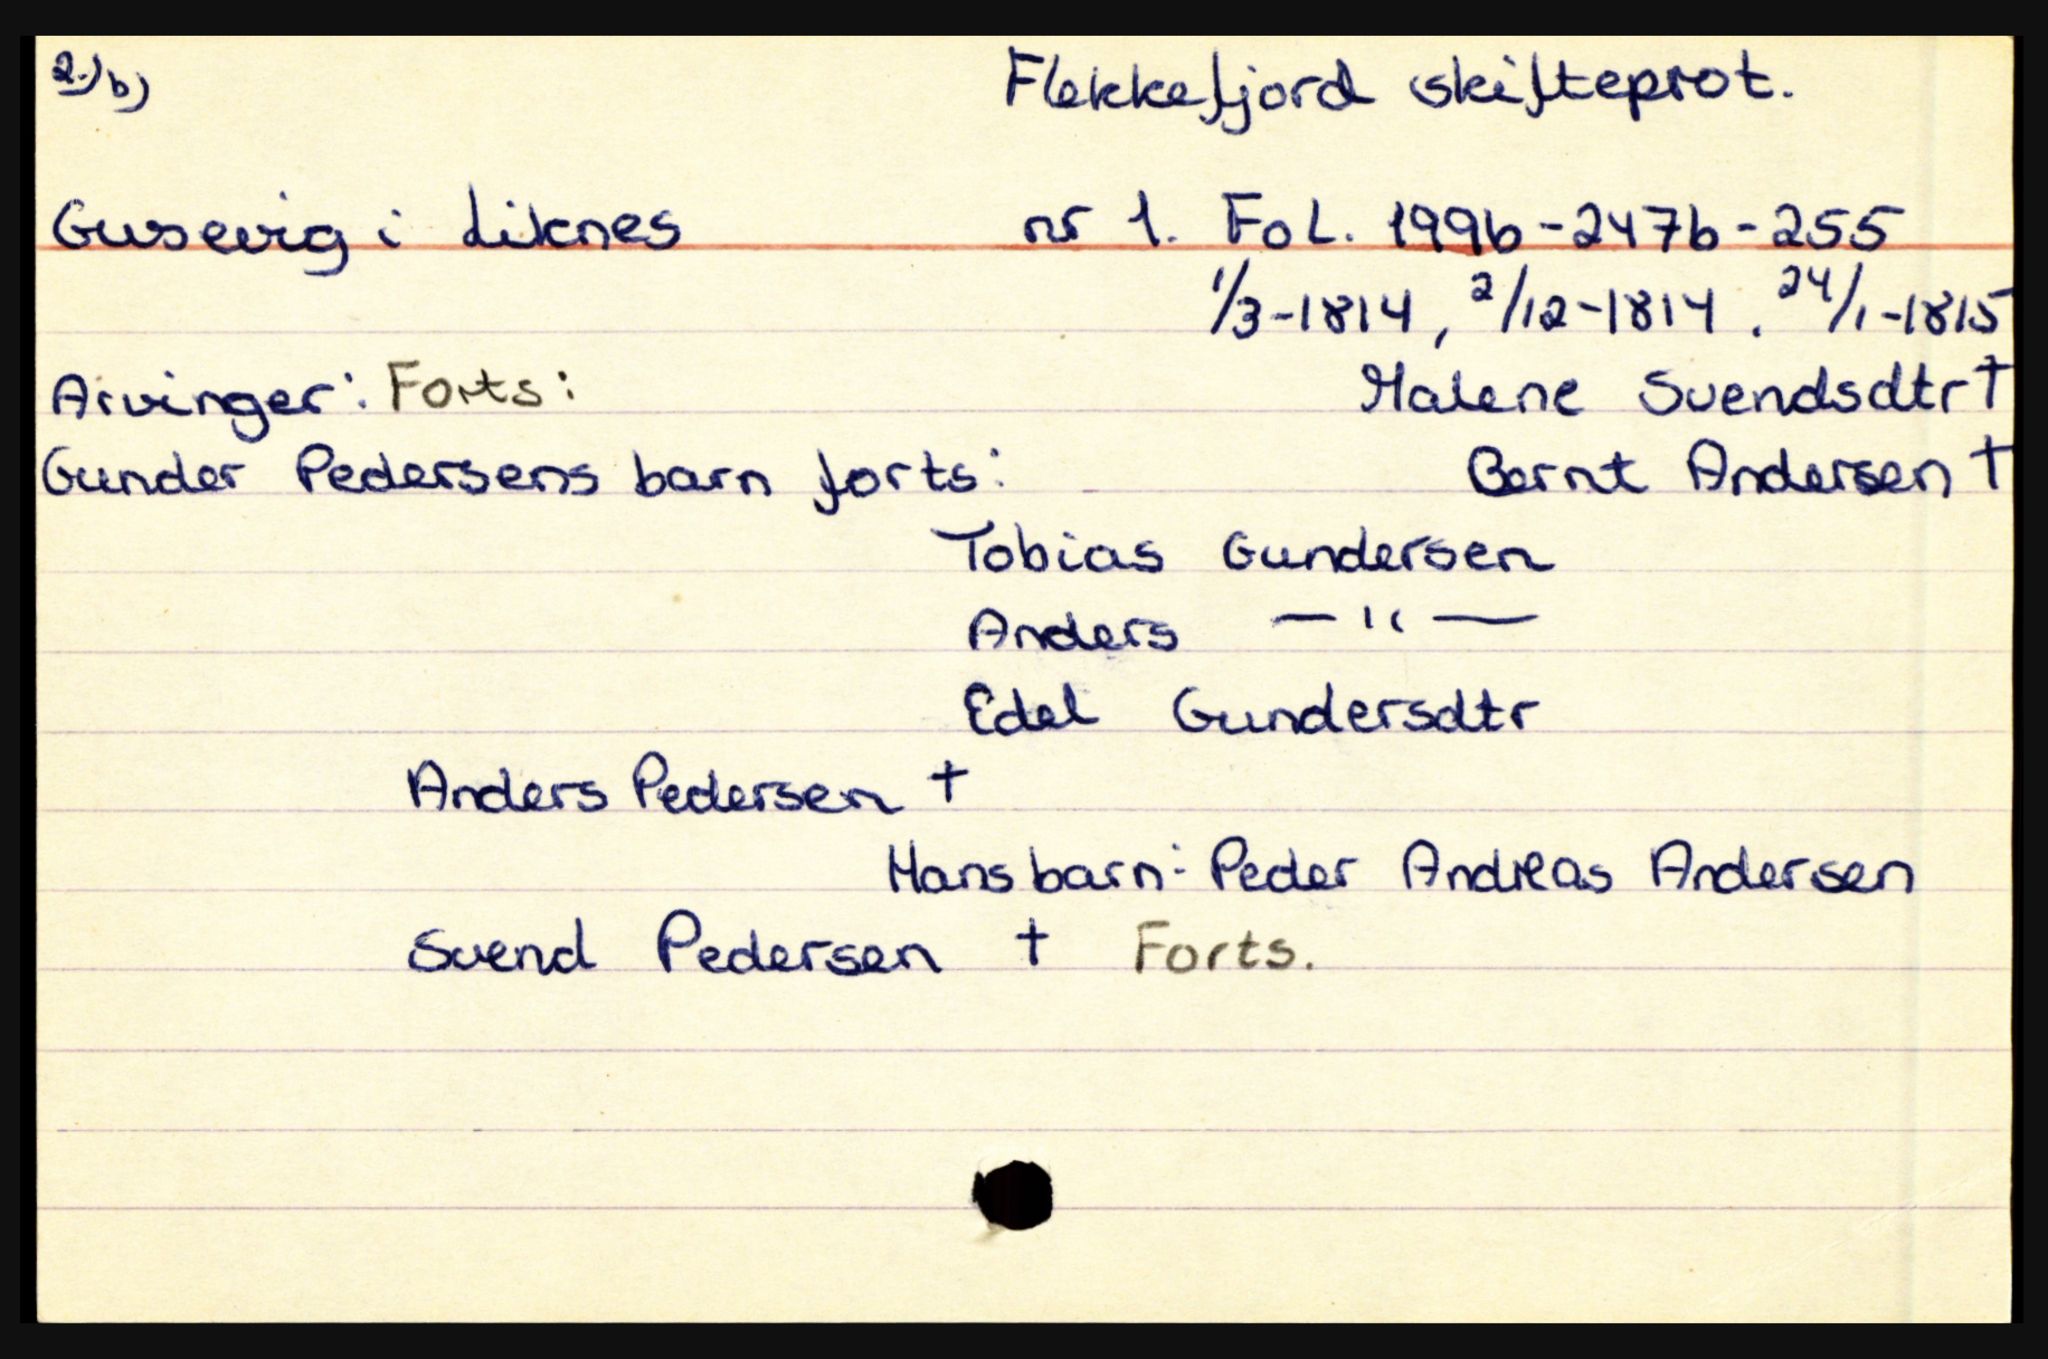 2.) b) Flekkefjord skifteprot.
Gusevig i Liknes nr 1. Fol. 199b-247b-255
1/3-1814, 2/12-1814, 24/1-1815
Arvinger: Forts: Malene Svendsdtr †
Gunder Pedersens barn forts: Bernt Andersen †
Tobias Gundersen
Anders —"—
Edel Gundersdtr
Anders Pedersen †
Hans barn: Peder Andreas Andersen
Svend Pedersen † Forts.